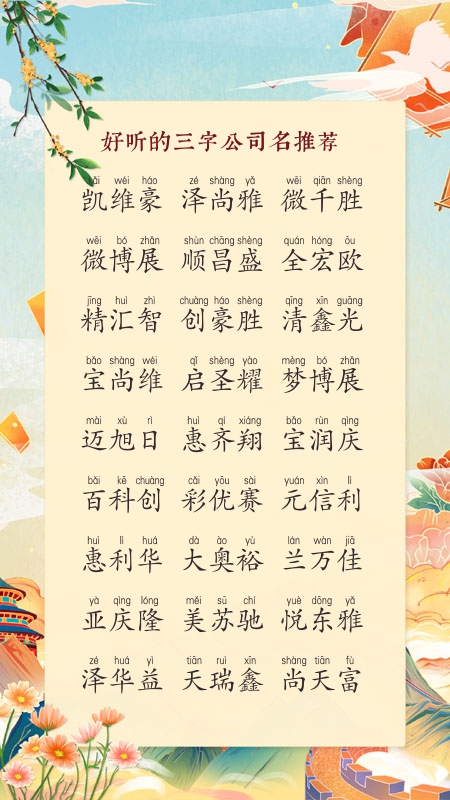 好听的三字公司名推荐
kǎi wéi háo zé shàng yǎ wēi qiān shèng
凯维豪 泽尚雅 微千胜
wēi bó zhǎn shùn chāng shèng quán hóng ōu
微博展 顺昌盛 全宏欧
jīng huì zhì chuàng háo shèng qīng xīn guāng
精汇智 创豪胜 清鑫光
bǎo shàng wéi qǐ shèng yào mèng bó zhǎn
宝尚维 启圣耀 梦博展
mài xù rì huì qí xiáng bǎo rùn qìng
迈旭日 惠齐翔 宝润庆
bǎi kē chuàng cǎi yōu sài yuán xìn lì
百科创 彩优赛 元信利
huì lì huá dà ào yù lán wàn jiā
惠利华 大奥裕 兰万佳
yà qìng lóng měi sū chí yuè dōng yǎ
亚庆隆 美苏驰 悦东雅
zé huá yì tiān ruì xīn shàng tiān fù
泽华益 天瑞鑫 尚天富